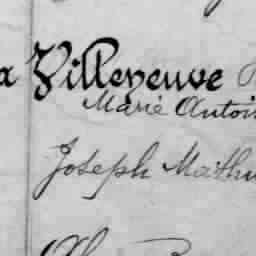 a Villeneuve
Marie Antoi
Joseph Mathu